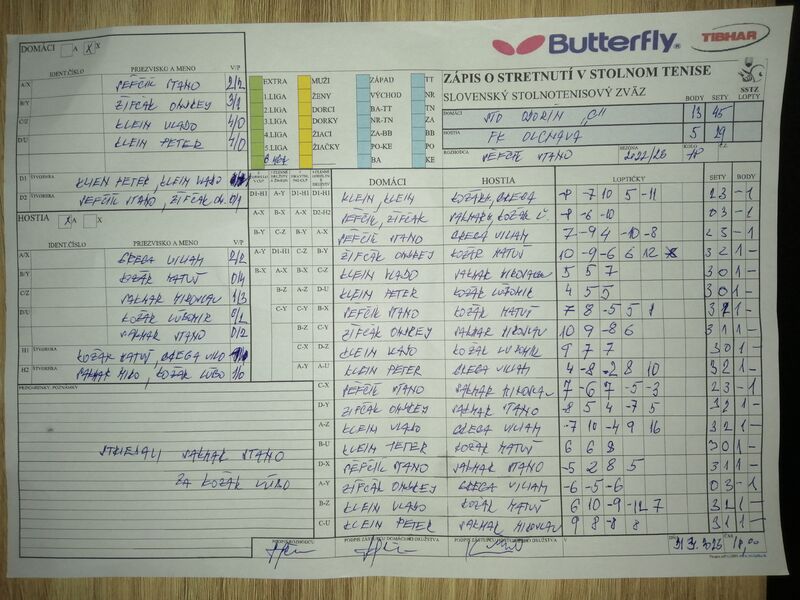 Butterfly
TIBHAR
DOMÁCI A X
IDENT.ČÍSLO PRIEZVISKO A MENO V/P
A/X PEFČÍK STANO 2/2
B/Y ŽIFČÁK ONDREJ 3/1
C/Z KLEIN VLADO 4/0
D/U KLEIN PETER
D1 ŠTVORHRA KLIEN PETER, KLEIN VLADO
D2 ŠTVORHRA PEFČÍK STANO, ŽIFČÁK ON. 0/1
HOSTIA A X
IDENT.ČÍSLO PRIEZVISKO A MENO V/P
A/X GREGA VILIAM 2/2
B/Y KOŽÁR MATÚŠ 0/4
C/Z VALKAR MIROSLAV 1/3
D/U KOŽÁR ĽUBOMIR 0/2
VALKAR STANO 0/2
H1 ŠTVORHRA KOŽÁR MATÚŠ, GREGA VILO
H2 ŠTVORHRA VALKAR MIRO, KOŽÁR ĽUBO 1/0
PRIPOMIENKY, POZNÁMKY
STRIEDALI VALKAR STANO
ZA KOŽÁR ĽUBO
EXTRA MUŽI ZÁPAD TT
1.LIGA ŽENY VÝCHOD NR
2.LIGA DORCI BA-TT TN
3.LIGA DORKY NR-TN ZA
4.LIGA ŽIACI ZA-BB BB
5.LIGA ŽIAČKY PO-KE PO
BA KE
ZÁPIS O STRETNUTÍ V STOLNOM TENISE
SLOVENSKÝ STOLNOTENISOVÝ ZVÄZ
SSTZ
BODY SETY LOPTY
DOMÁCI STO ODORÍN „C“ 13 45
HOSTIA FK OLCNAVA 5 29
ROZHODCA PEFČÍK STANO SEZÓNA KOLO
DOMÁCI HOSTIA LOPTIČKY SETY BODY
D1-H1 A-Y D1-H1 D1-H1 KLEIN, KLEIN KOŽÁR M, GREGA -8 -7 10 5 -11 2 3 - 1
A-X B-X A-X D2-H2 PEFČÍK, ŽIFČÁK VALKAR M, KOŽÁR Ľ. -8 -6 -10 0 3 - 1
B-Y C-Z B-Y A-X PEFČÍK STANO GREGA VILIAM 7 -9 4 -10 -8 2 3 - 1
A-Y D1-H1 C-Z B-Y ŽIFČÁK ONDREJ KOŽÁR MATÚŠ 10 -9 -6 6 12 3 2 1 -
B-X A-X B-X C-Z KLEIN VLADO VALKAR MIROSLAV 5 5 7 3 0 1 -
B-Z A-Z D-U KLEIN PETER KOŽÁR ĽUBOMIR 4 5 5 3 0 1 -
C-Y C-Y B-X PEFČÍK STANO KOŽÁR MATÚŠ 7 8 -5 5
B-Z C-Y ŽIFČÁK ONDREJ VALKAR MIROSLAV 10 9 -8 6 3 1 1 -
C-X D-Z KLEIN VLADO KOŽÁR ĽUBOMIR 9 7 7 3 0 1 -
A-Y A-U KLEIN PETER GREGA VILIAM 4 -8 -2 8 10 3 2 1 -
C-X PEFČÍK STANO VALKAR MIROSLAV 7 -6 7 -5 -3 2 3 - 1
D-Y ŽIFČÁK ONDREJ VALKAR STANO -8 5 4 -7 5 3 2 1 -
A-Z KLEIN VLADO GREGA VILIAM -7 10 -4 9 16 3 2 1 -
B-U KLEIN PETER KOŽÁR MATÚŠ 6 6 8 3 0 1 -
D-X PEFČÍK STANO VALKAR STANO -5 2 8 5 3 1 1 -
A-Y ŽIFČÁK ONDREJ GREGA VILIAM -6 -5 -6 0 3 - 1
B-Z KLEIN VLADO KOŽÁR MATÚŠ 6 10 -9 -12 7 3 2 1 -
C-U KLEIN PETER VALKAR MIROSLAV 9 8 -8 8 3 1 1 -
PODPIS ROZHODCU PODPIS ZÁSTUPCU DOMÁCEHO DRUŽSTVA PODPIS ZÁSTUPCU HOSŤUJÚCEHO DRUŽSTVA V